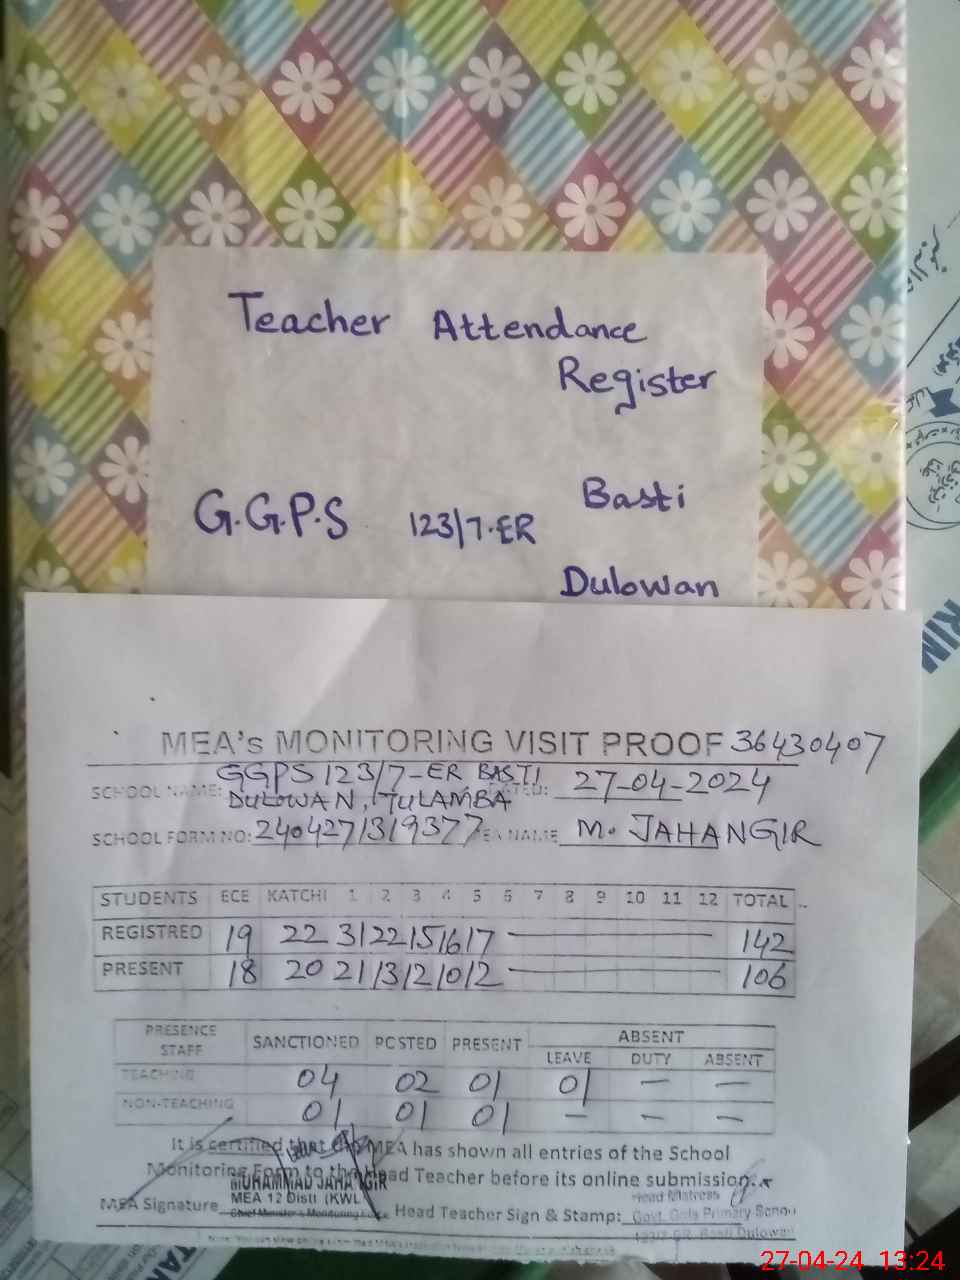 Teacher Attendance
Register
G.G.P.S 123/7.ER Basti
Dulowan
MEA's MONITORING VISIT PROOF 36430407
SCHOOL NAME: GGPS 123/7-ER BASTI DULOWAN, TULAMBA DATED: 27-04-2024
SCHOOL FORM NO: 2404271319377 MEA NAME M. JAHANGIR
STUDENTS ECE KATCHI 1 2 3 4 5 6 7 8 9 10 11 12 TOTAL
REGISTRED 19 22 31 22 15 16 17 142
PRESENT 18 20 21 13 12 10 12 106
PRESENCE STAFF SANCTIONED POSTED PRESENT ABSENT
LEAVE DUTY ABSENT
TEACHING 04 02 01 01 — —
NON-TEACHING 01 01 01 — — —
It is certified that the MEA has shown all entries of the School
Monitoring Form to the Head Teacher before its online submission.
MUHAMMAD JAHANGIR
MEA 12 Distt (KWL
Chief Minister's Monitoring Force
MEA Signature Head Teacher Sign & Stamp:
Head Mistress
Govt. Girls Primary Schoo
123/7 ER. Basti Dulowan
KIM
TAN
27-04-24 13:24